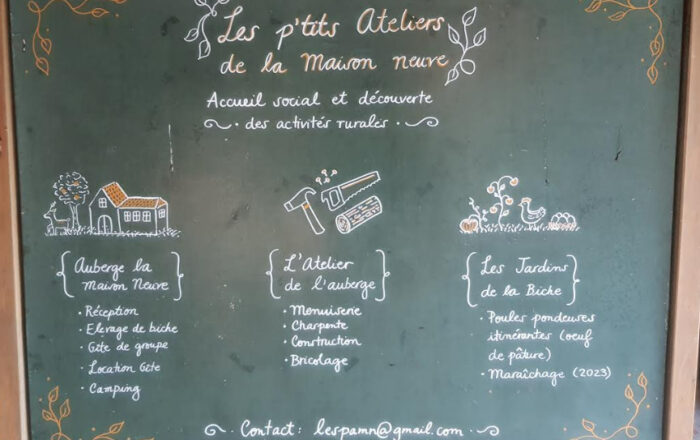 Les p'tits Ateliers
de la Maison neuve
Accueil social et découverte
des activités rurales
Auberge la
Maison Neuve
• Réception
• Elevage de biche
• Gîte de groupe
• Location Gîte
• Camping
L'Atelier
de l'auberge
• Menuiserie
• Charpente
• Construction
• Bricolage
Les Jardins
de la Biche
• Poules pondeuses
itinérantes (oeuf
de pâture)
• Maraîchage (2023)
Contact: lespamn@gmail.com